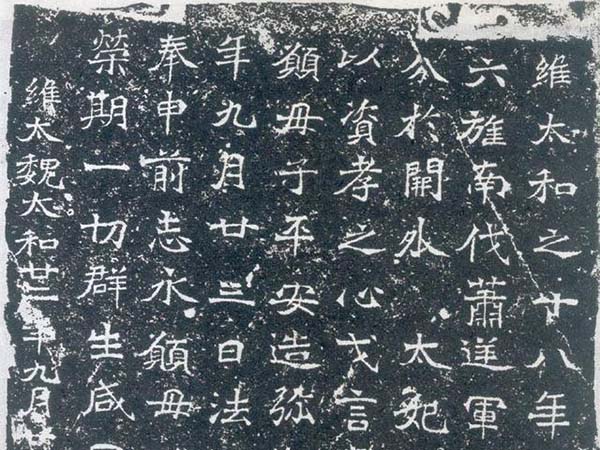 維太和之十八年
六旌南伐蕭逆軍
分於開外 太妃
以資孝之心戈言
願母子平安造弥
年九月廿三日法
奉申前志永願母
榮期一切群生咸
維太魏太和廿二年九月